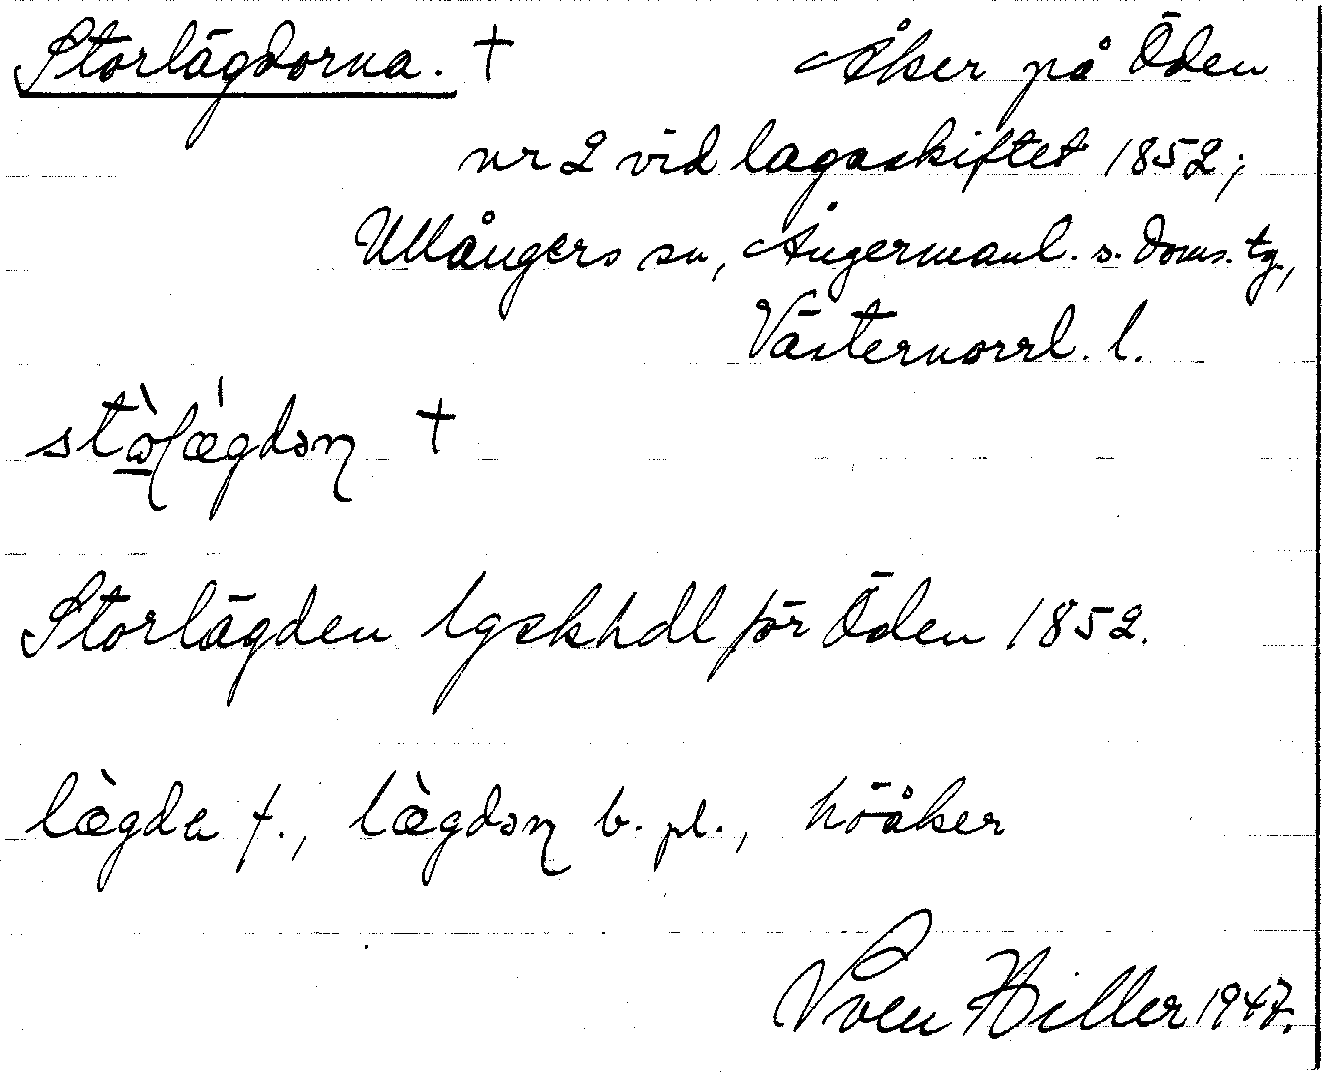 Storlägdorna. † Åker på Öden
nr 2 vid lagaskiftet 1852;
Ullångers sn, Ångermanl. s. doms. tg.,
Västernorrl. l.
†
Storlägden lgskhdl för Öden 1852.
lægda f., b. pl., höåker
Sven Hiller 1947.